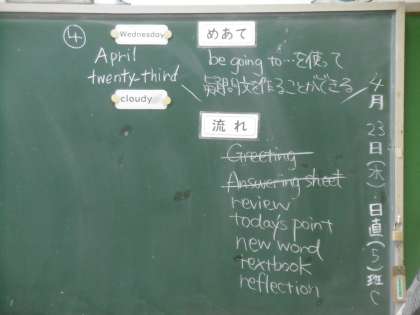 ④
Wednesday
April
twenty-third
cloudy
めあて
be going to…を使って
疑問文を作ることができる
流れ
Greeting
Answering sheet
review
today's point
new word
textbook
reflection
4月23日(水)日直(5)班